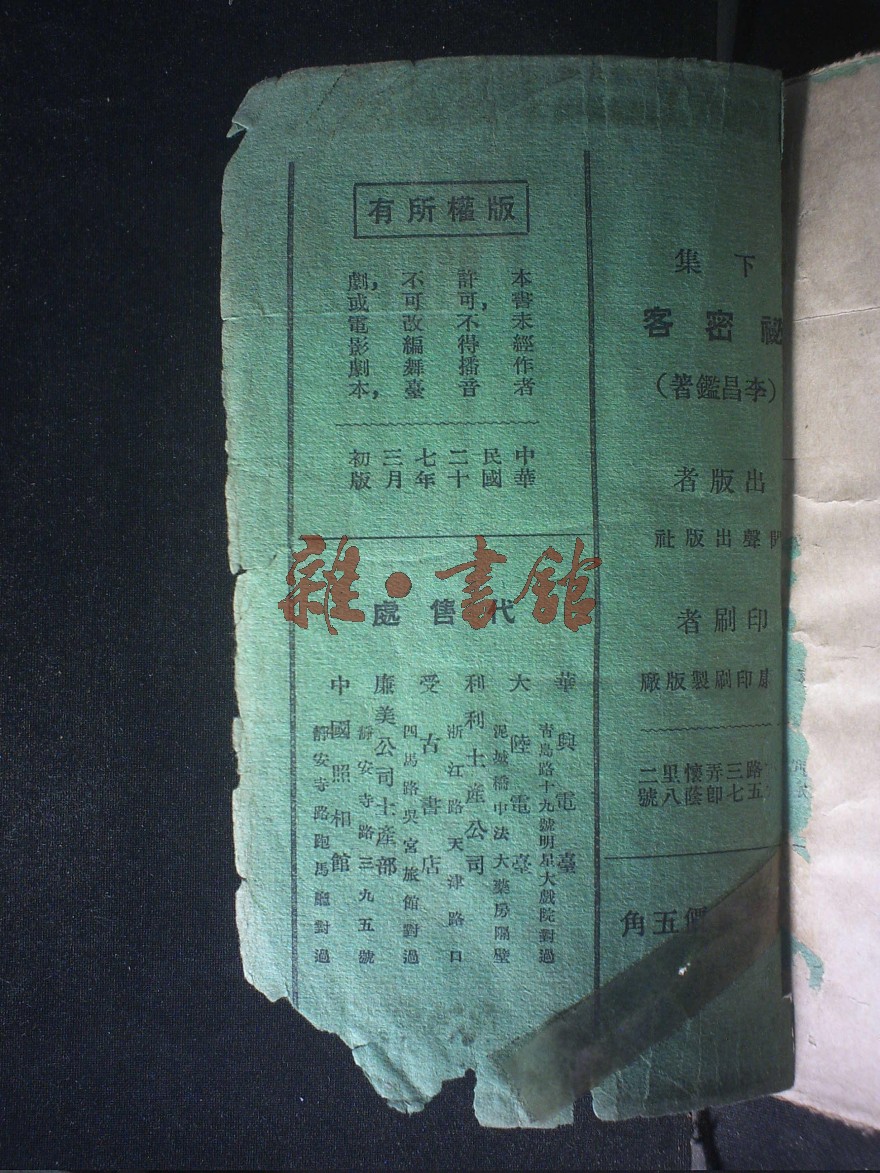 下集
祕密客
(李昌鑑著)
出版者
聲出版社
印刷者
印刷製版廠
路三弄懷里二
五七即蔭八號
價五角
版權所有
本書未經作者
許可,不得播音
不可改編舞臺
劇,或電影劇本,
中華
民國
二十
七年
三月
初版
代售處
華興電臺
青島路十九號明星大戲院對過
大陸電臺
泥城橋中法大藥房隔壁
利利土產公司
浙江路天津路口
受古書店
四馬路吳宮旅館對過
廉美公司土產部
靜安寺路三九五號
中國照相館
靜安寺路跑馬廳對過
雜·書館